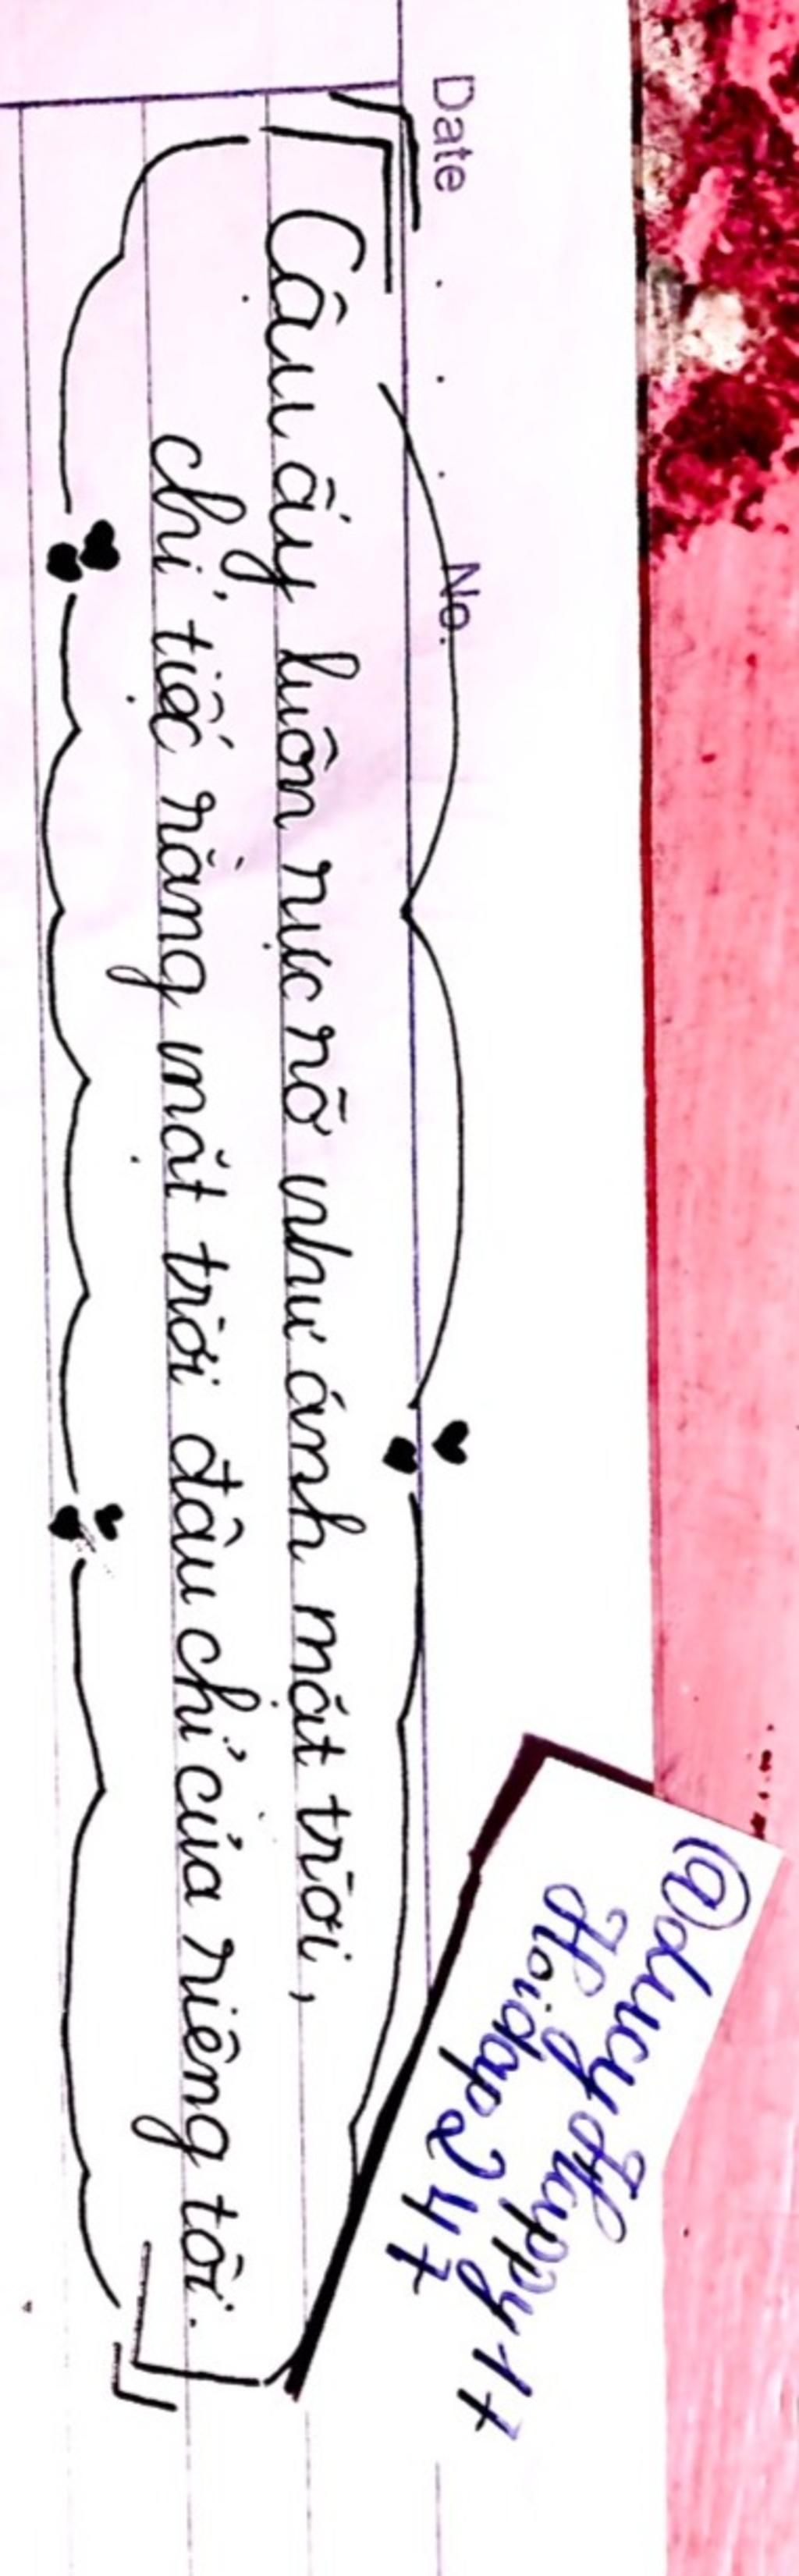 Date . . . No.
Cậu ấy luôn rực rỡ như ánh mặt trời,
chỉ tiếc rằng mặt trời đâu chỉ của riêng tôi.
@LucyHappy17
Hoidap247